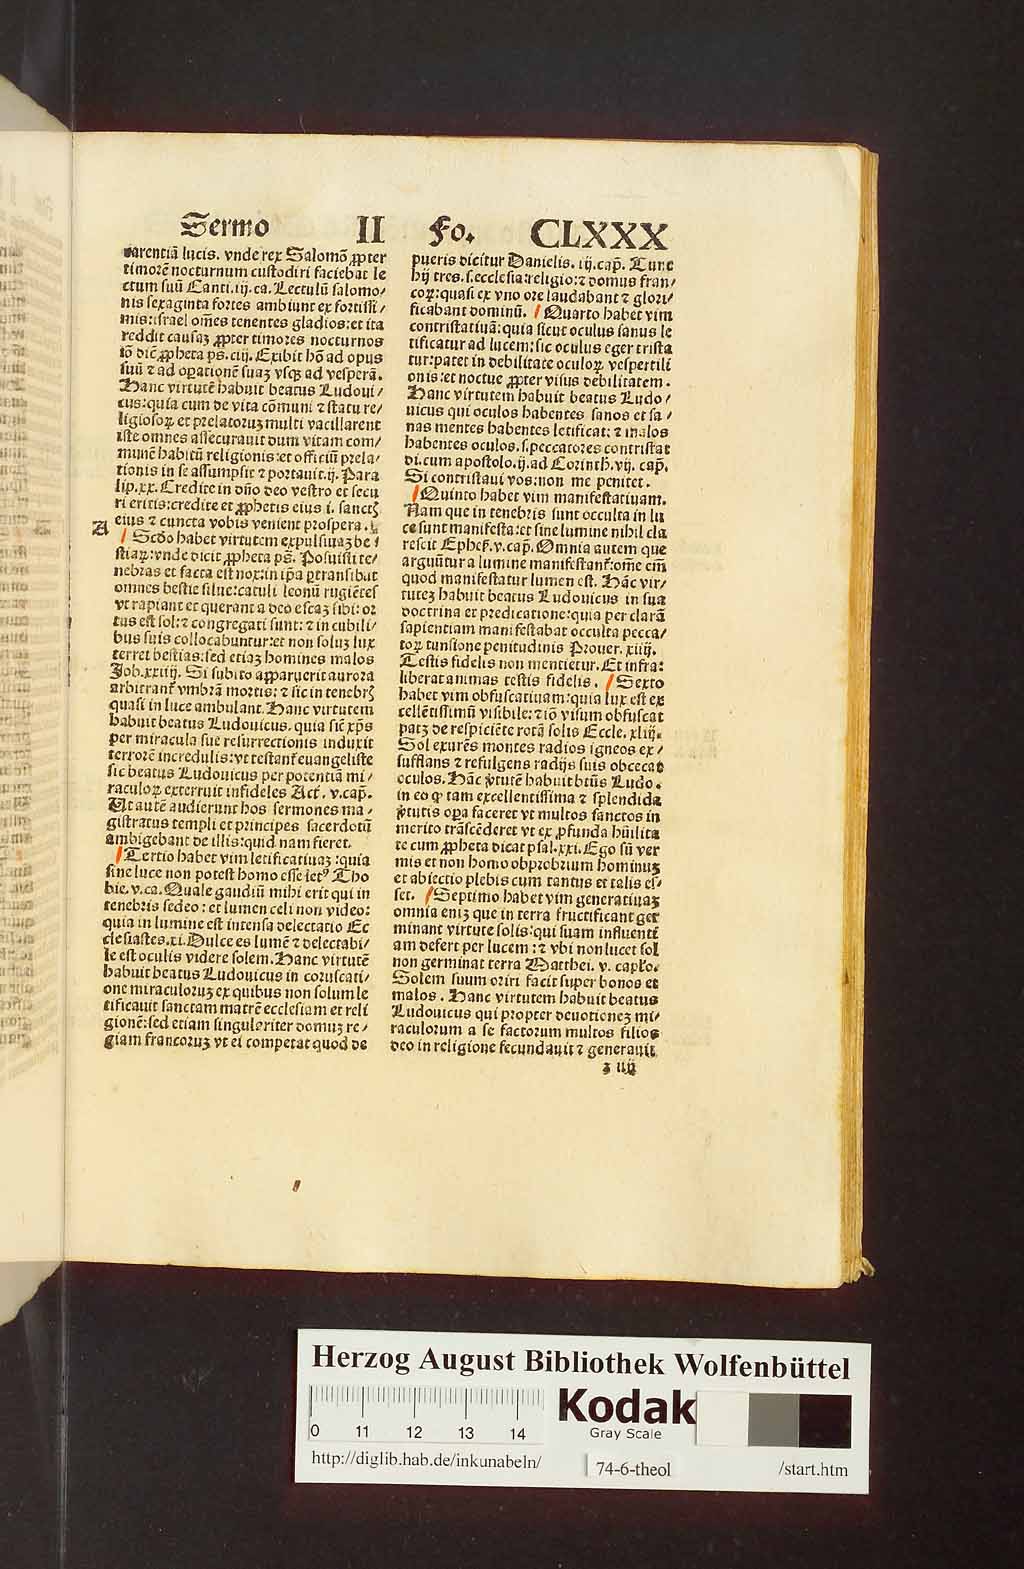 Sermo II Fo. CLXXX
parentiā lucis. vnde rex Salomō ꝓpter
timorē nocturnum custodiri faciebat le
ctum suū Canti.iij.ca. Lectulū salomo/
nis sexaginta fortes ambiunt ex fortissi/
mis:israel om̄es tenentes gladios:et ita
reddit causaꝫ ꝓpter timores nocturnos
iō dic̄ ꝓpheta ps. ciij. Exibit hō ad opus
suū ⁊ ad oꝑationē suaꝫ vsqꝫ ad vesperā.
Hanc virtutē habuit beatus Ludoui/
cus:quia cum de vita cōmuni ⁊ statu re/
ligiosoꝝ et prelatoruꝫ multi vacillarent
iste omnes assecurauit dum vitam com/
munē habitū religionis:et officiū prela/
tionis in se assumpsit ⁊ portauit.ij. Para
lip.xx. Credite in dn̄o deo vestro et secu
ri eritis:credite et ꝓphetis eius i. sanctꝭ
eius ⁊ cuncta vobis venient prospera.
A
Scd̄o habet virtutem expulsiuaꝫ be
stiaꝝ:vnde dicit ꝓpheta ps̄. Posuisti te/
nebras et facta est nox:in ip̄a ꝑtransibūt
omnes bestie silue:catuli leonū rugiētes
vt rapiant et querant a deo escaꝫ sibi: or
tus est sol:⁊ congregati sunt: ⁊ in cubili/
bus suis collocabuntur:et non soluꝫ lux
terret bestias:sed etiaꝫ homines malos
Job.xxiiij. Si subito apparuerit aurora
arbitrant᷑ vmbrā mortis: ⁊ sic in tenebrꝭ
quasi in luce ambulant. Hanc virtutem
habuit beatus Ludouicus. quia sic̄ xp̄s
per miracula sue resurrectionis induxit
terrorē incredulis:vt testant᷑ euangeliste
sic beatus Ludouicus per potentiā mi/
raculoꝝ exterruit infideles Act. v.cap̄.
Ut autē audierunt hos sermones ma/
gistratus templi et principes sacerdotū
ambigebant de illis:quid nam fieret.
Tertio habet vim letificatiuaꝫ :quia
sine luce non potest homo esse letꝰ Tho
bie.v.ca. Quale gaudiū mihi erit qui in
tenebris sedeo: et lumen celi non video:
quia in lumine est intensa delectatio Ec
clesiastes.xi. Dulce es lumē ⁊ delectabi/
le est oculis videre solem. Hanc virtutē
habuit beatus Ludouicus in coruscati/
one miraculoruꝫ ex quibus non solum le
tificauit sanctam matrē ecclesiam et reli
gionē:sed etiam singulariter domuꝫ re/
giam francoruꝫ vt ei competat quod de
pueris dicitur Danielis. iij.cap̄. Tunc
hij tres.s.ecclesia:religio:⁊ domus fran/
coꝝ:quasi ex vno ore laudabant ⁊ glori/
ficabant dominū. Quarto habet vim
contristatiuā:quia sicut oculus sanus le
tificatur ad lucem:sic oculus eger trista
tur:patet in debilitate oculoꝝ vespertili
onis:et noctue ꝓpter visus debilitatem.
Hanc virtutem habuit beatus Ludo/
uicus qui oculos habentes sanos et sa/
nas mentes habentes letificat: ⁊ malos
habentes oculos.s.peccatores contristat
vt.cum apostolo.ij.ad Corinth. vij. cap̄.
Si contristaui vos:non me penitet.
Quinto habet vim manifestatiuam.
Nam que in tenebris sunt occulta in lu
ce sunt manifesta:et sine lumine nihil cla
rescit Ephes. v.cap̄. Omnia autem que
arguūtur a lumine manifestant᷑:om̄e em̄
quod manifestatur lumen est. Hāc vir/
tuteꝫ habuit beatus Ludouicus in sua
doctrina et predicatione:quia per clarā
sapientiam manifestabat occulta pecca/
toꝝ tunsione penitudinis Prouer. xiiij.
Testis fidelis non mentietur. Et infra:
liberat animas testis fidelis. Sexto
habet vim obfuscatiuam:quia lux est ex
cellētissimū visibile:⁊ iō visum obfuscat
patꝫ de respiciēte rotā solis Eccle. xliij.
Sol exurēs montes radios igneos ex/
sufflans ⁊ refulgens radijs suis obcecat
oculos. Hāc v̓tutē habuit btūs Ludo.
in eo ꝙ tam excellentissima ⁊ splendida
v̓tutis oꝑa faceret vt multos sanctos in
merito trāscēderet vt ex ꝓfunda hūilita
te cum ꝓpheta dicat psal.xxi. Ego sū ver
mis et non homo obprobrium hominuꝫ
et abiectio plebis cum tantus et talis es/
set. Septimo habet vim generatiuaꝫ
omnia eniꝫ que in terra fructificant ger
minant virtute solis:qui suam influenti
am defert per lucem: ⁊ vbi non lucet sol
non germinat terra Matthei. v. capło.
Solem suum oriri facit super bonos et
malos. Hanc virtutem habuit beatus
Ludouicus qui propter deuotioneꝫ mi/
raculorum a se factorum multos filios
deo in religione fecundauit ⁊ generauit
ʒ iiij
Herzog August Bibliothek Wolfenbüttel
Kodak
Gray Scale
0 11 12 13 14
http://diglib.hab.de/inkunabeln/ 74-6-theol /start.htm